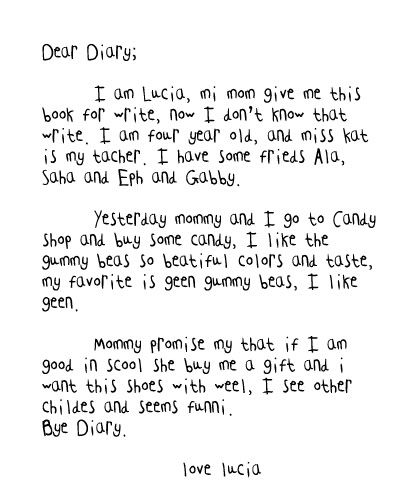 Dear Diary;
I am Lucia, mi mom give me this
book for write, now I don't know that
write. I am four year old, and miss kat
is my tacher. I have some frieds Ala,
Saha and Eph and Gabby.
Yesterday mommy and I go to Candy
shop and buy some candy, I like the
gummy beas so beatiful colors and taste,
my favorite is geen gummy beas, I like
geen.
Mommy promise my that if I am
good in scool she buy me a gift and i
want this shoes with weel, I see other
childes and seems funni.
Bye Diary.
love lucia